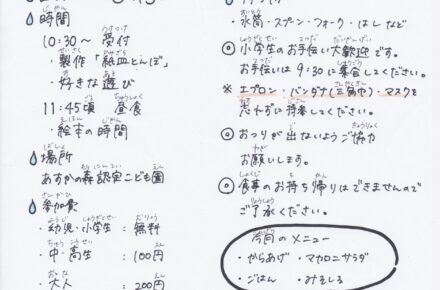 時間
10:30〜 受付
・製作「紙皿とんぼ」
・好きな遊び
11:45頃 昼食
・絵本の時間
場所
あすかの森認定こども園
参加費
・幼児・小学生 : 無料
・中・高生 : 100円
・大人 : 200円
・水筒・スプーン・フォーク・はし など
◎小学生のお手伝い大歓迎です。
お手伝いは 9:30に集合してください。
※ エプロン・バンダナ(三角巾)・マスクを
忘れずに持参してください。
◎ おつりが出ないようご協力
お願いします。
◎ 食事のお持ち帰りはできませんので
ご了承ください。
今月のメニュー
・からあげ ・マカロニサラダ
・ごはん ・みそしる